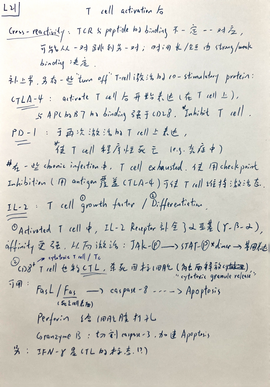 L21 T cell activation 后
Cross-reactivity: TCR 与 peptide 的 binding 不一定一一对应,
可能从一对多到多对一, 时间长/短由 strong/weak
binding 决定.
补上章, 另一些 "turn off" T-cell 激活的 co-stimulatory protein:
CTLA-4: activate T cell 后开始表达 (在 T cell 上),
与 APC 的 B7 的 binding 强于 CD28. *Inhibit T cell.
PD-1: 于再次激活的 T 上表达,
*使 T cell 程序性死亡 (e.g. 炎症中)
*在一些 chronic infection 中, T cell exhausted. 使用 checkpoint
Inhibition (用 antigen 覆盖 CTLA-4) 可使 T cell 维持激活态.
IL-2: T cell ① growth factor / ② Differentiation.
① Activated T cell 中, IL-2 Receptor 补全了双亚基 (γ.β.α),
affinity 更强. 从而激活: JAK-Ⓟ → STAT-Ⓟ *dimer →
or cytotoxic T cell / Tc
② CD8+ T cell 也称 CTL,
"cytotoxic granule release"
可用: FasL / Fas → caspase-8 ----→ Apoptosis
Perforin 给 打孔
Granzyme B: 切割 caspase-3, 加速 Apoptosis
另: IFN-γ 是 CTL 的标志!!)